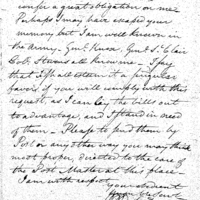 confer a great obligation on me
Perhaps I may have escaped your
memory but I am well known in
the Army. Genl. Knox, Genl. St Clair
Col. Stevens all know me. I say
that I shall esteem it a singular
favor if you will comply with this
request, as I can lay the bills out
to advantage, and I stand in need
of them. Please to send them by
Post or any other way you may think
most proper, directed to the care of
the Post Master at this place.
I am with respect
your obedient